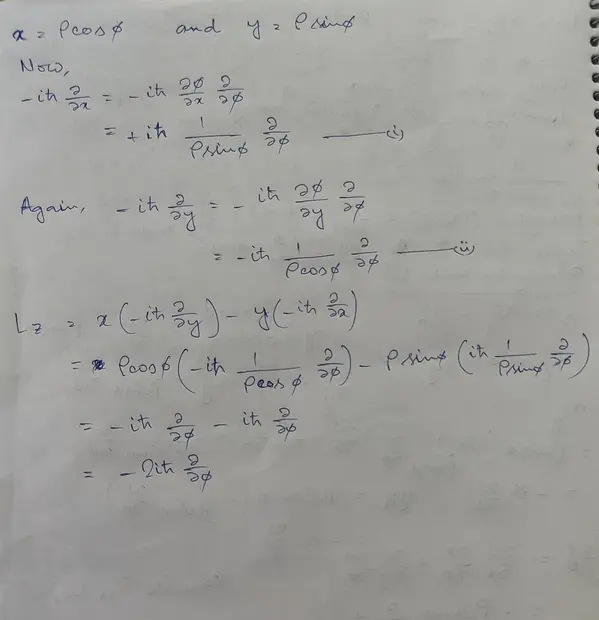 x = ρcosϕ and y = ρsinϕ
Now,
-iħ ∂/∂x = -iħ ∂ϕ/∂x ∂/∂ϕ
= +iħ 1/ρsinϕ ∂/∂ϕ ——(i)
Again, -iħ ∂/∂y = -iħ ∂ϕ/∂y ∂/∂ϕ
= -iħ 1/ρcosϕ ∂/∂ϕ ——(ii)
L_z = x(-iħ ∂/∂y) - y(-iħ ∂/∂x)
= ρcosϕ(-iħ 1/ρcosϕ ∂/∂ϕ) - ρsinϕ(iħ 1/ρsinϕ ∂/∂ϕ)
= -iħ ∂/∂ϕ - iħ ∂/∂ϕ
= -2iħ ∂/∂ϕ